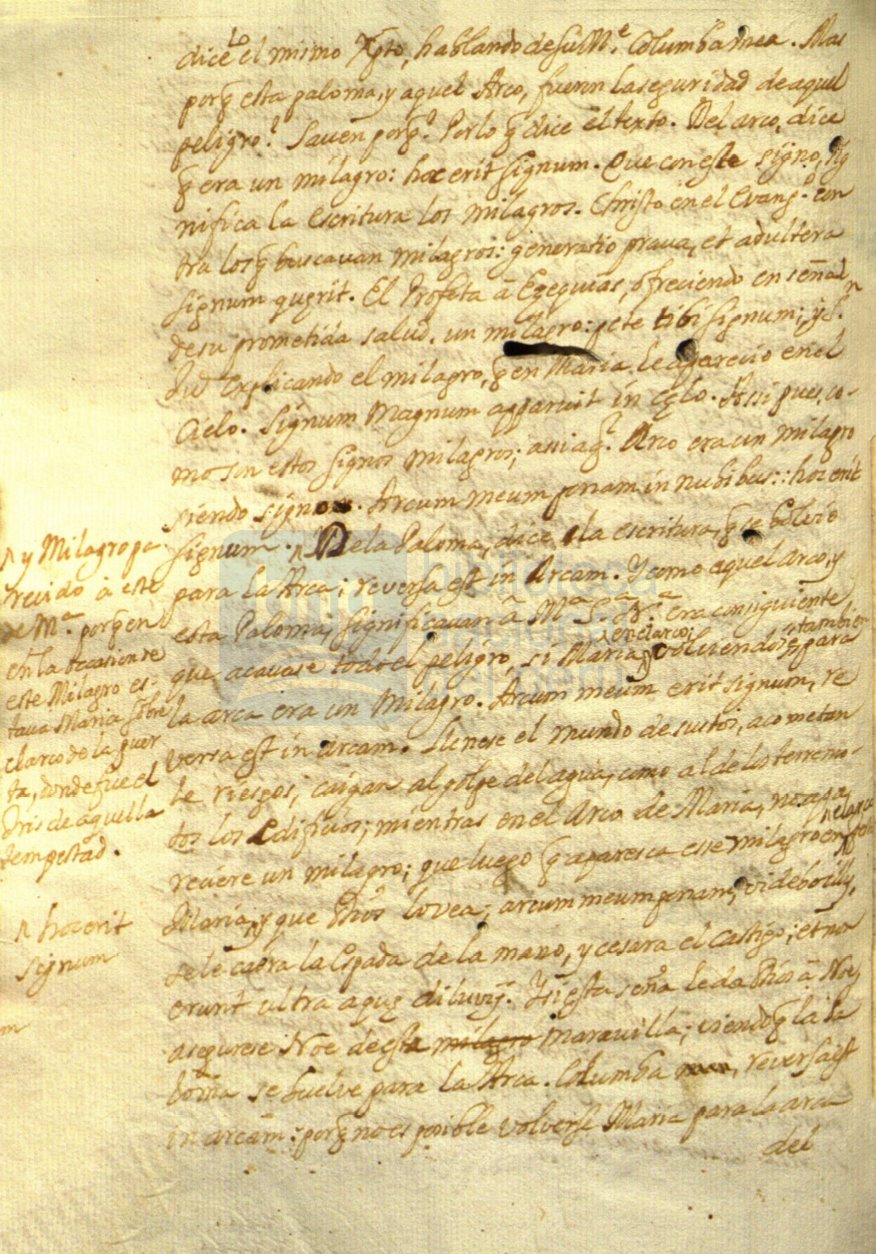 dicelo el mismo Xpto, hablando de su Me. Columba mea. Mas
porq̃ esta paloma, y aquel Arco, fueron la seguridad de aquel
peligro? Saven porq̃? Por lo q̃ dice el texto. Del arco, dice
q̃ era un milagro: hoc erit signum. Que con este signo, sig
nifica la escritura los milagros. Christo en el Evang.o con
tra los q̃ buscavan milagros: generatio prava, et adultera
signum quęrit. El Profeta â Ezequias, ofreciendo en señal
de su prometida salud, un milagro: pete tibi signum; y Sn
Juo explicando el milagro, q̃ en Maria le aparecio en el
Cielo. Signum Magnum apparuit in cęlo. Assi pues, co-
mo son estos signos milagros; assi aq.l Arco era un milagro
siendo signo. Arcum meum ponam in nubibus:: hoc erit
signum. De la Paloma, dice la escritura, q̃ se bolvio
para la Arca; reversa est in Arcam. Y como aquel arco, y
esta Paloma, significavan â Ma. Sa. Na. era consiguiente
que acavase todo el peligro, si Maria en el arco, y volviendose tambien para
la arca era un Milagro. Arcum meum erit signum, re
versa est in arcam. Llenese el mundo de sustos, acometan
le riesgos; caigan al golpe del agua, como al de los terremo-
tos los edificios; mientras en el Arco de Maria, no apa
reciere un milagro; que luego q̃ aparesca esse milagro en el arco
Maria, y que Dios lo vea; arcum meum ponam, videbo illũ,
se le caera la Espada de la mano, y cesara el castigo; et non
erunt ultra aquę diluvij. Y si esta seña le da Dios â Noe,
asegurese Noe de esta milagro maravilla; viendo q̃ la Pa
loma se buelve para la Arca. Columba, reversa est
in arcam: porq̃ no es posible volverse Maria para la arca
del
y Milagro pa
recido â este
de Ma. porq̃ en
en la ocasion de
este Milagro es-
tava Maria sobre
el arco de la puer
ta, donde fue el
Iris de aquella
tempestad.
hoc erit
signum